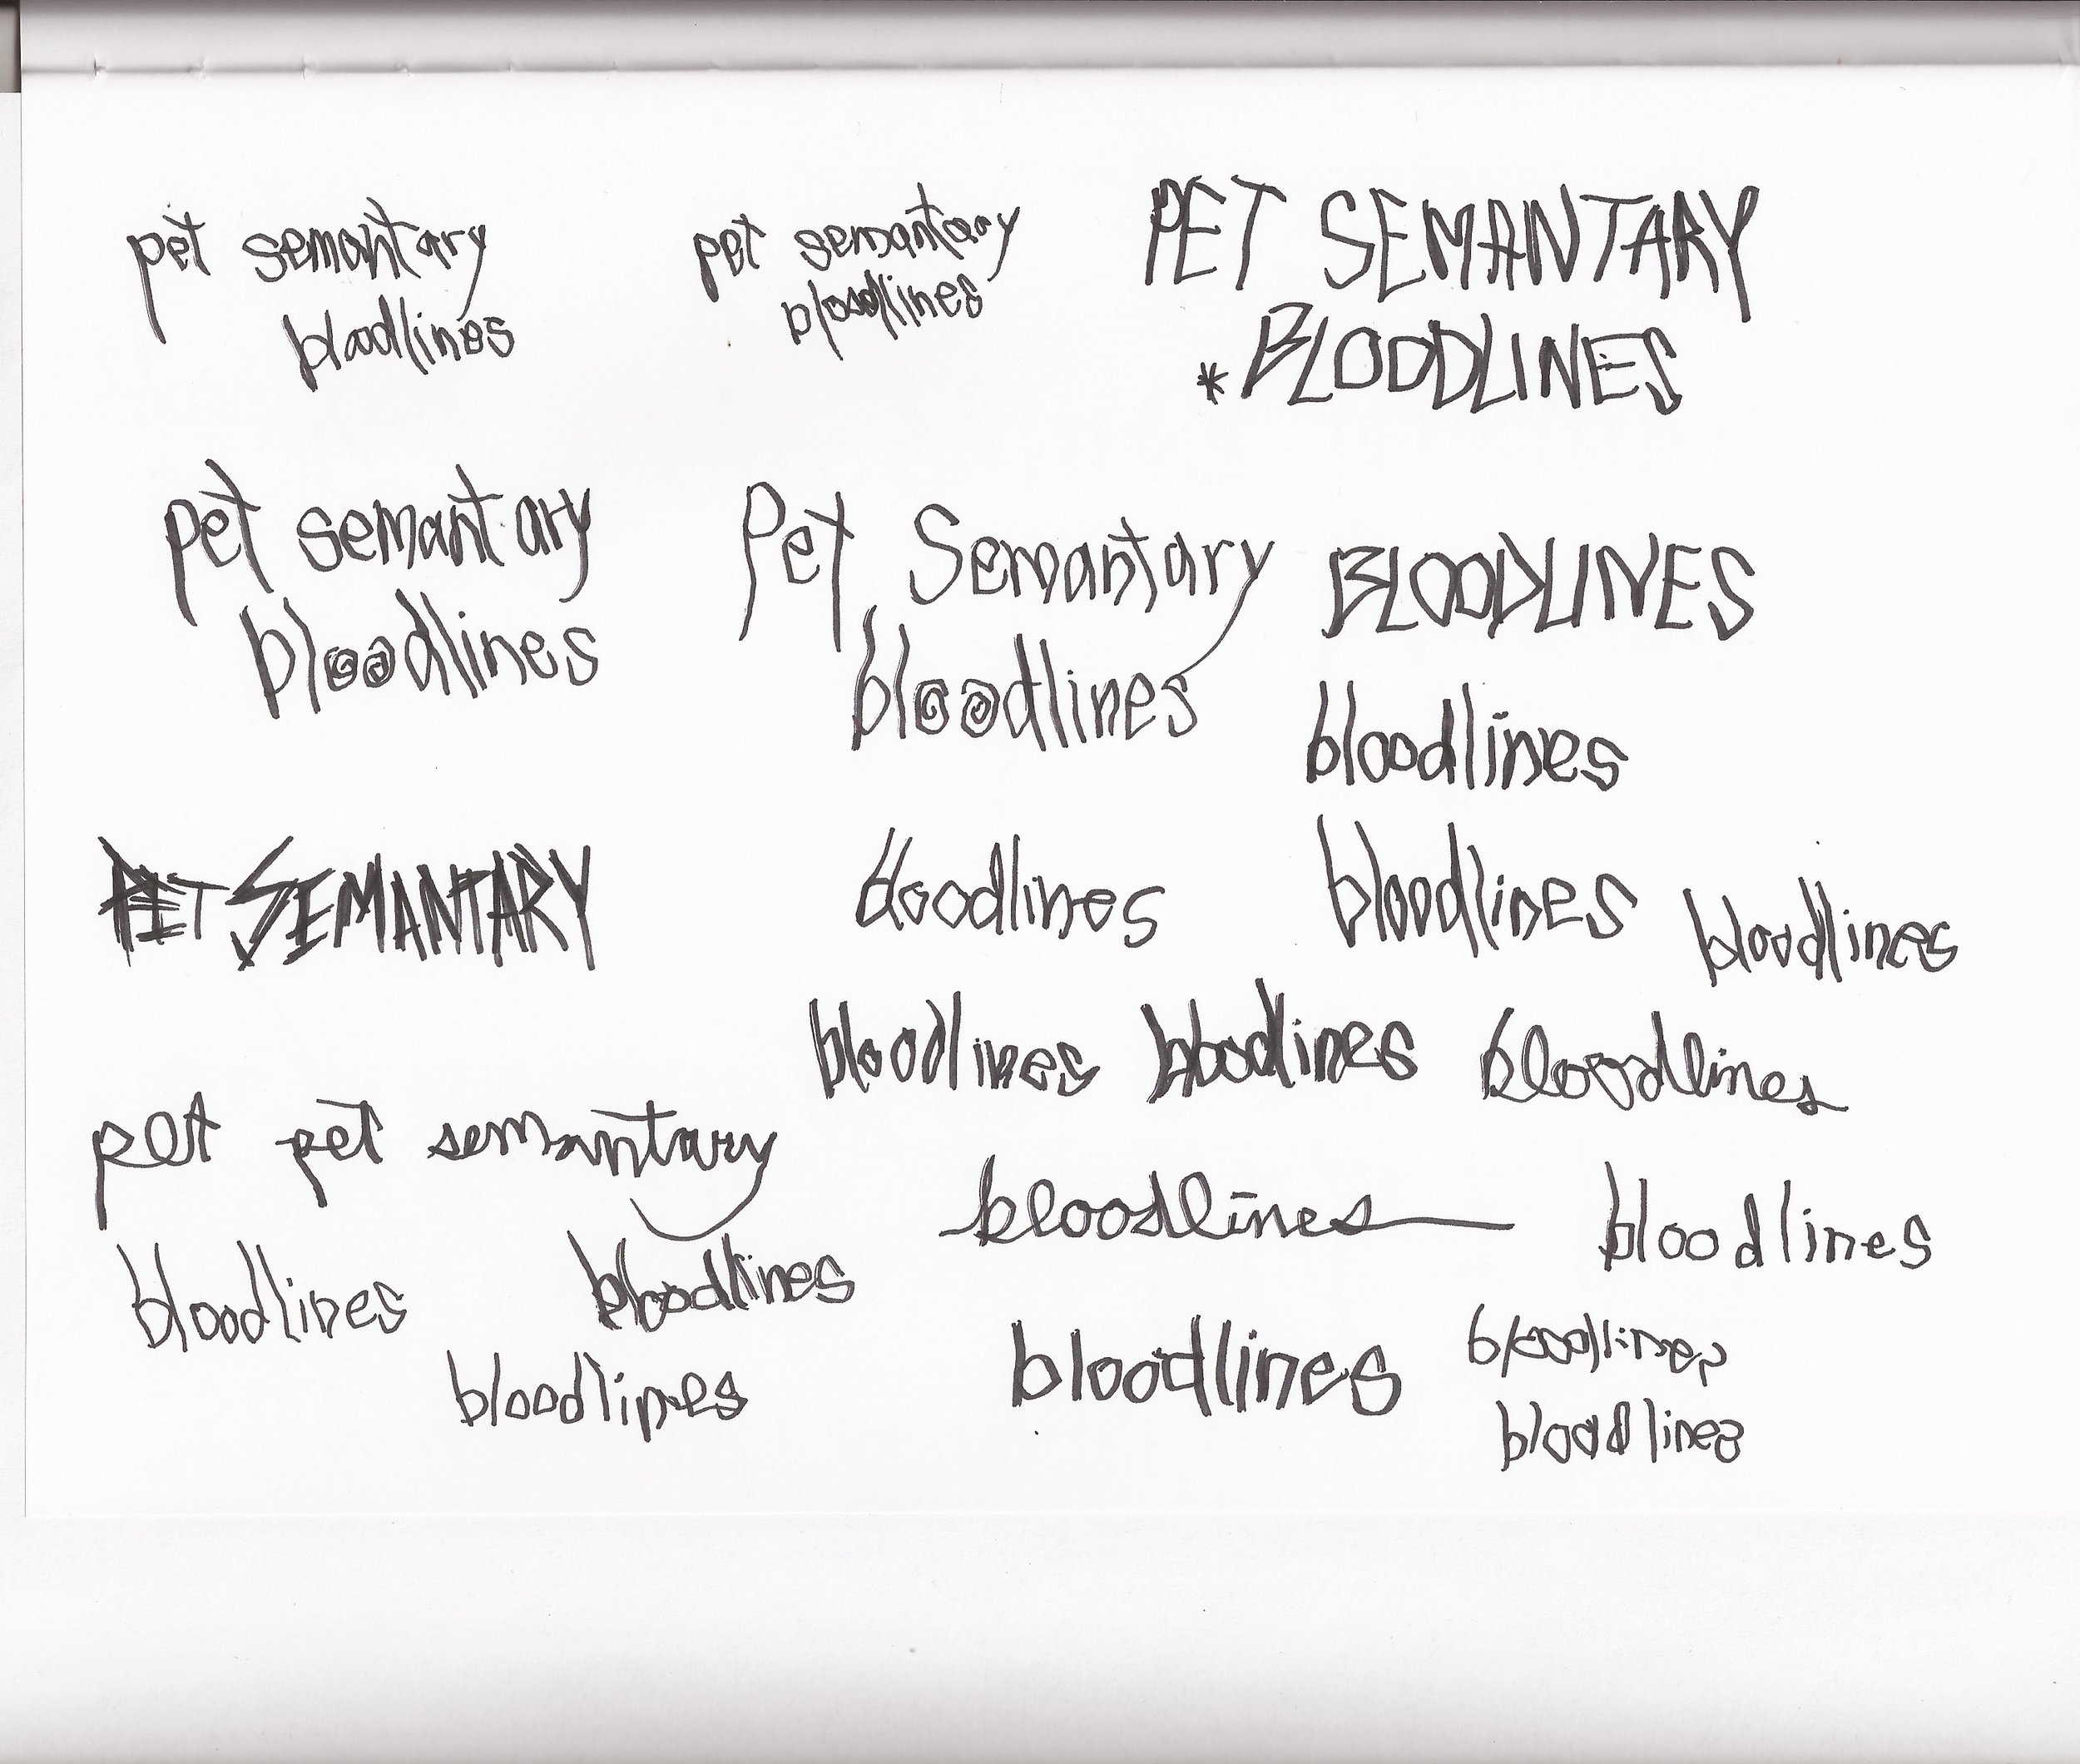 pet semantary
bloodlines
pet semantary
bloodlines
PET SEMANTARY
*BLOODLINES
pet semantary
bloodlines
Pet Semantary
bloodlines
BLOODLINES
bloodlines
PET SEMANTARY
bloodlines
bloodlines
bloodlines
bloodlines
bloodlines
bloodlines
pet pet semantary
bloodlines
bloodlines
bloodlines
bloodlines
bloodlines
bloodlines
bloodlines
bloodlines
bloodlines